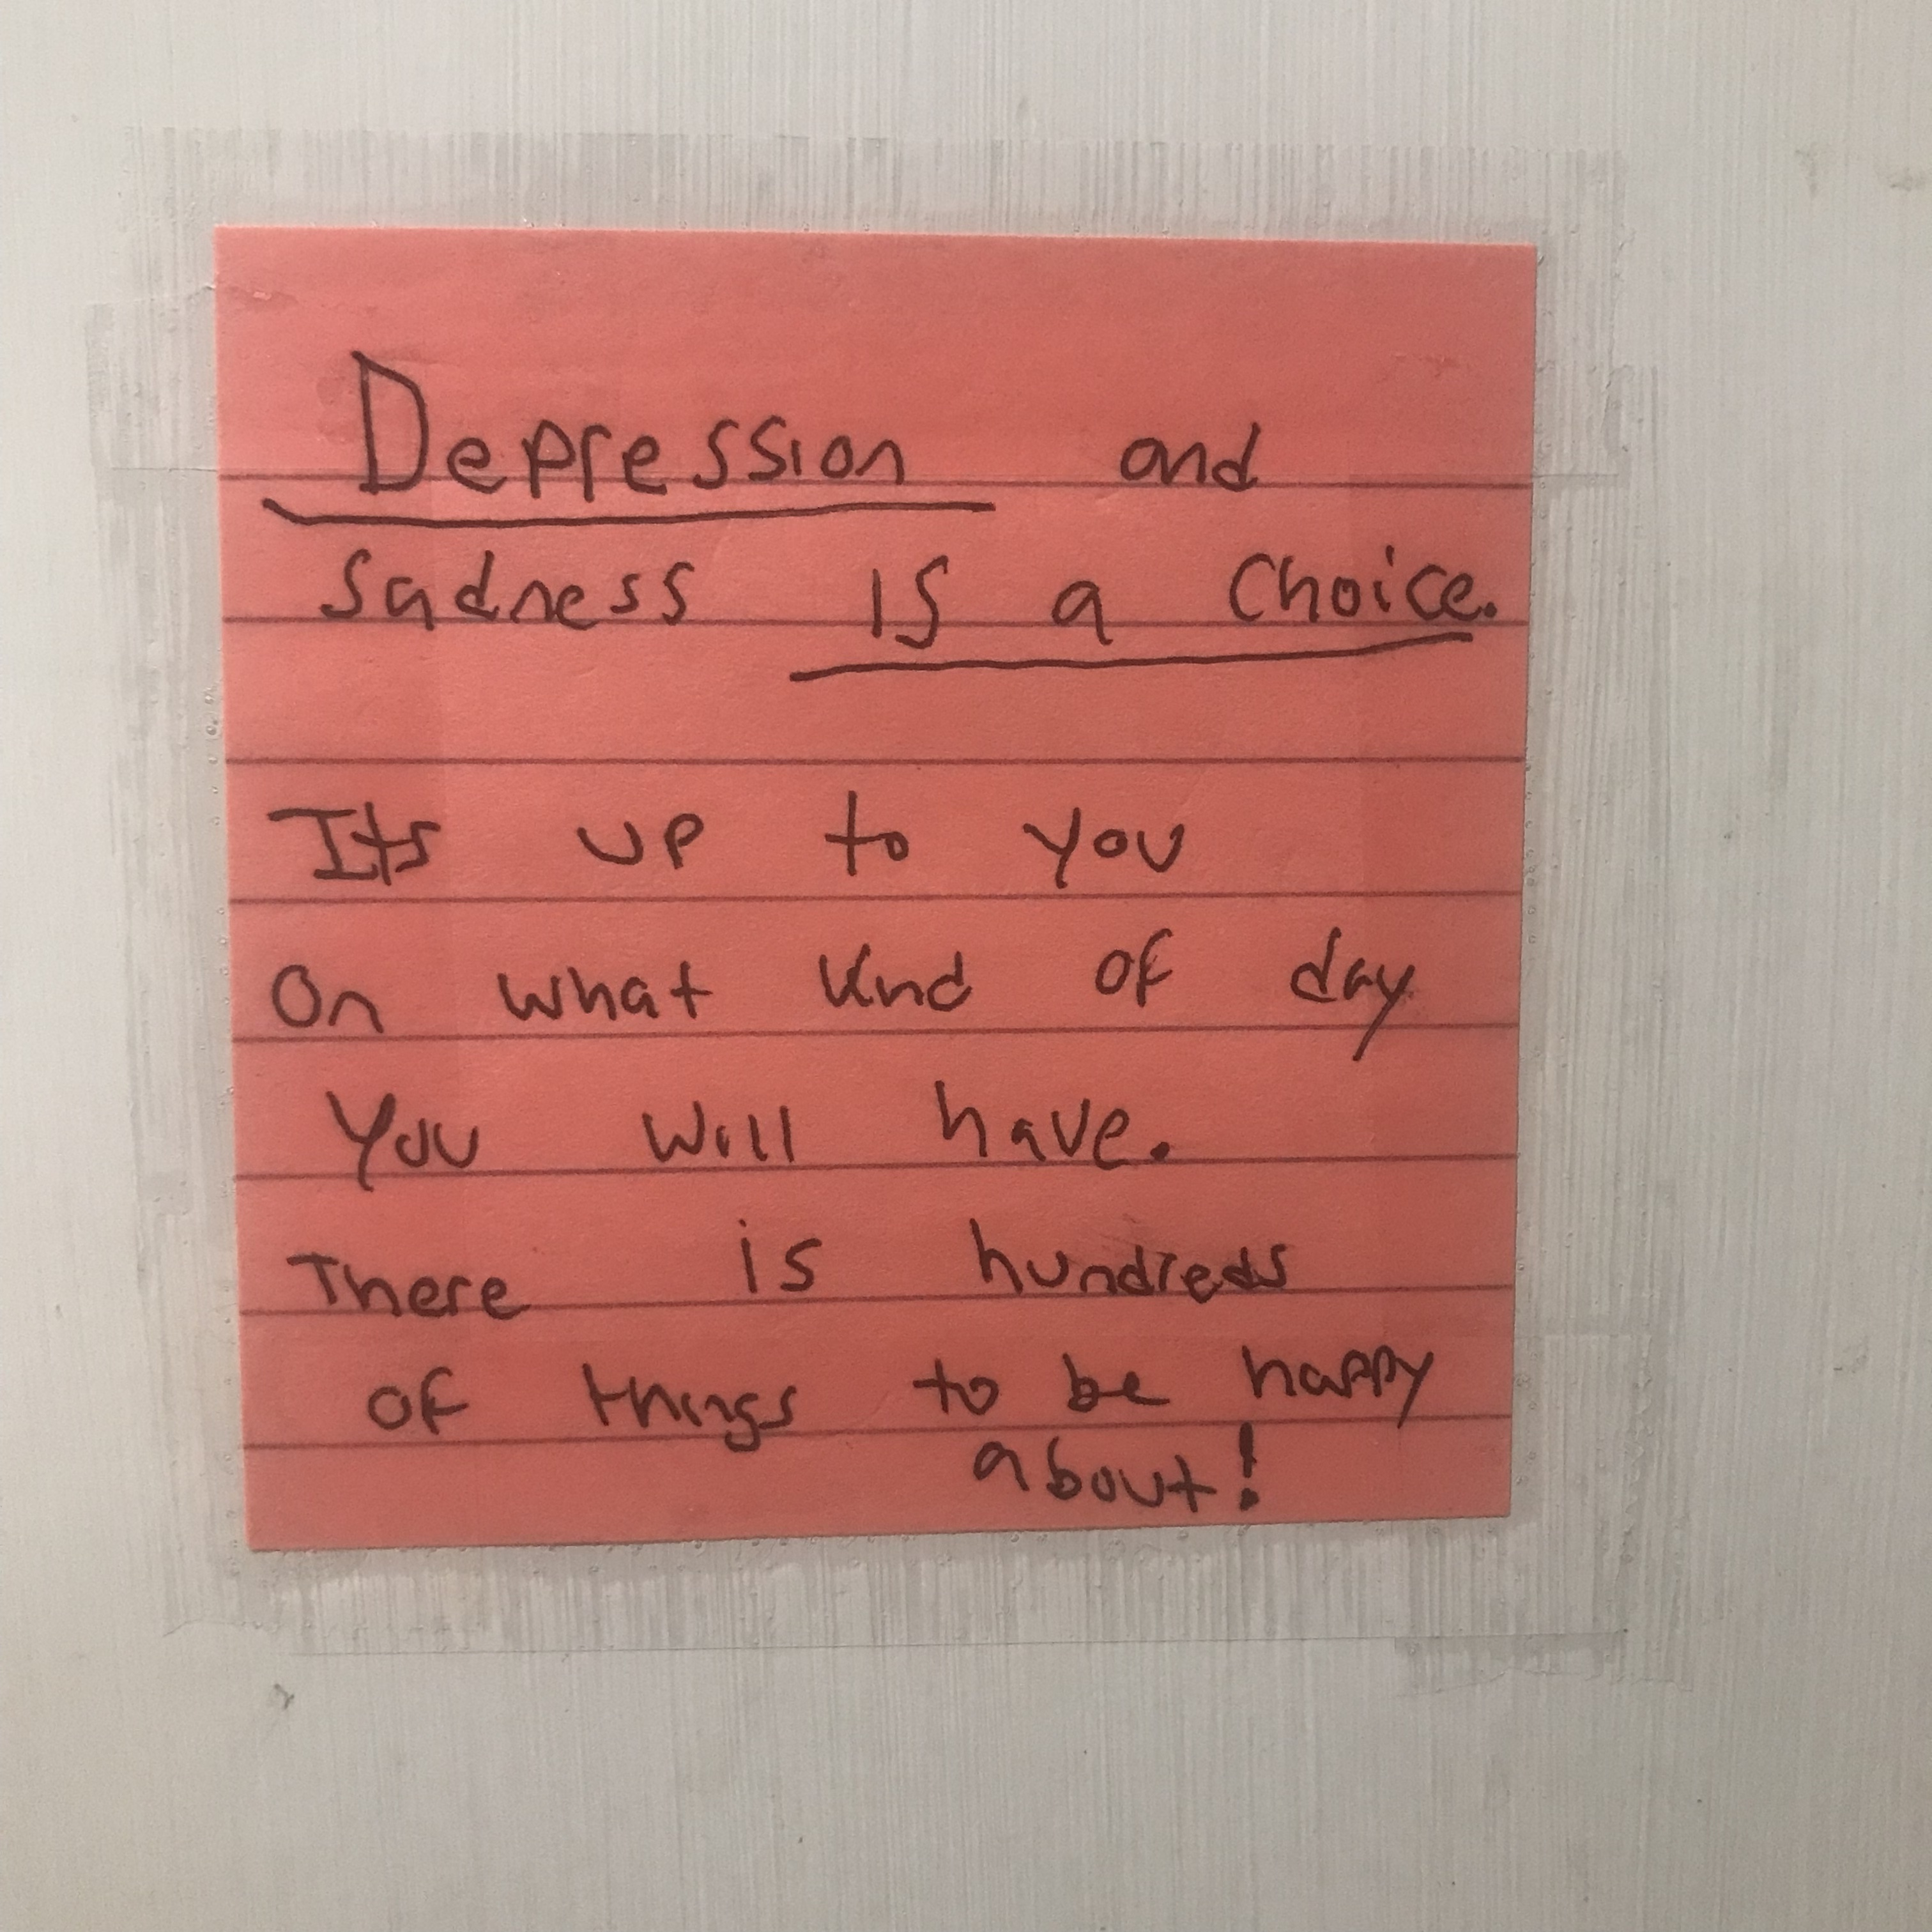 Depression and
Sadness is a choice.
Its up to you
On what kind of day
You will have.
There is hundreds
of things to be happy
about!